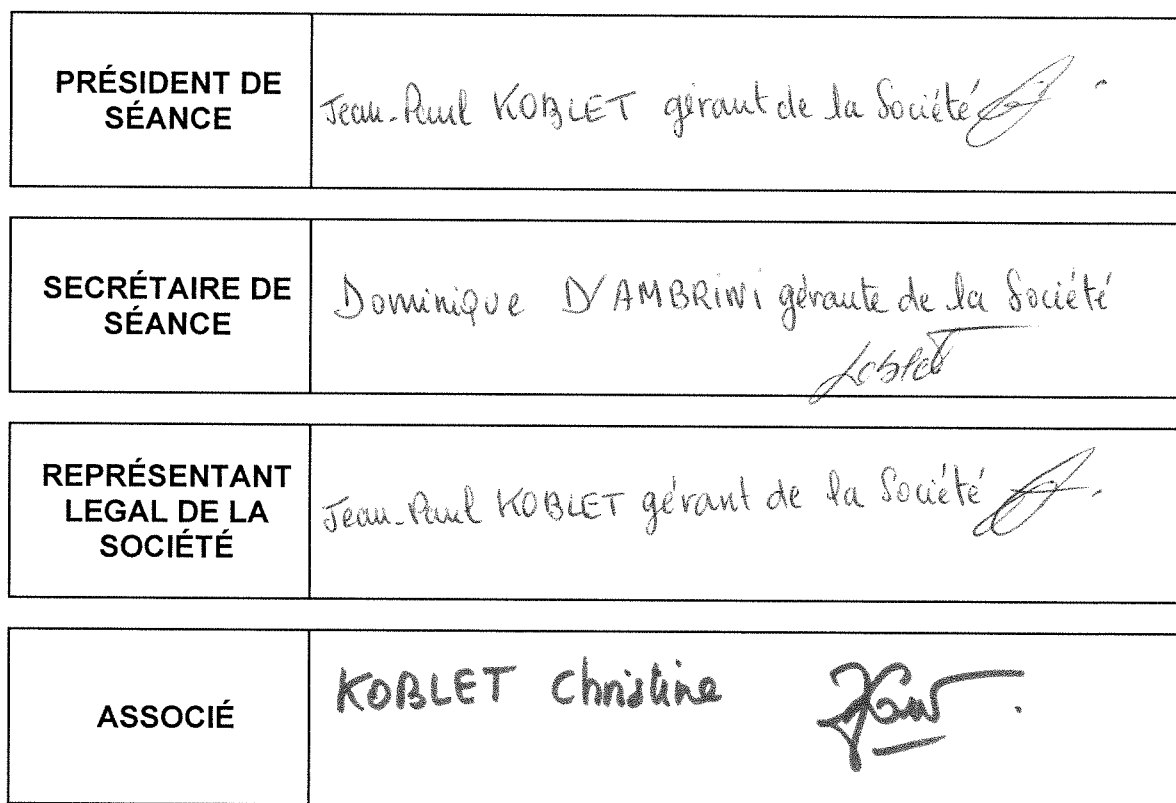 PRÉSIDENT DE
SÉANCE
Jean-Paul KOBLET gérant de la Société
SECRÉTAIRE DE
SÉANCE
Dominique D'AMBRINI gérante de la Société
Koblet
REPRÉSENTANT
LEGAL DE LA
SOCIÉTÉ
Jean-Paul KOBLET gérant de la Société
ASSOCIÉ
KOBLET Christine